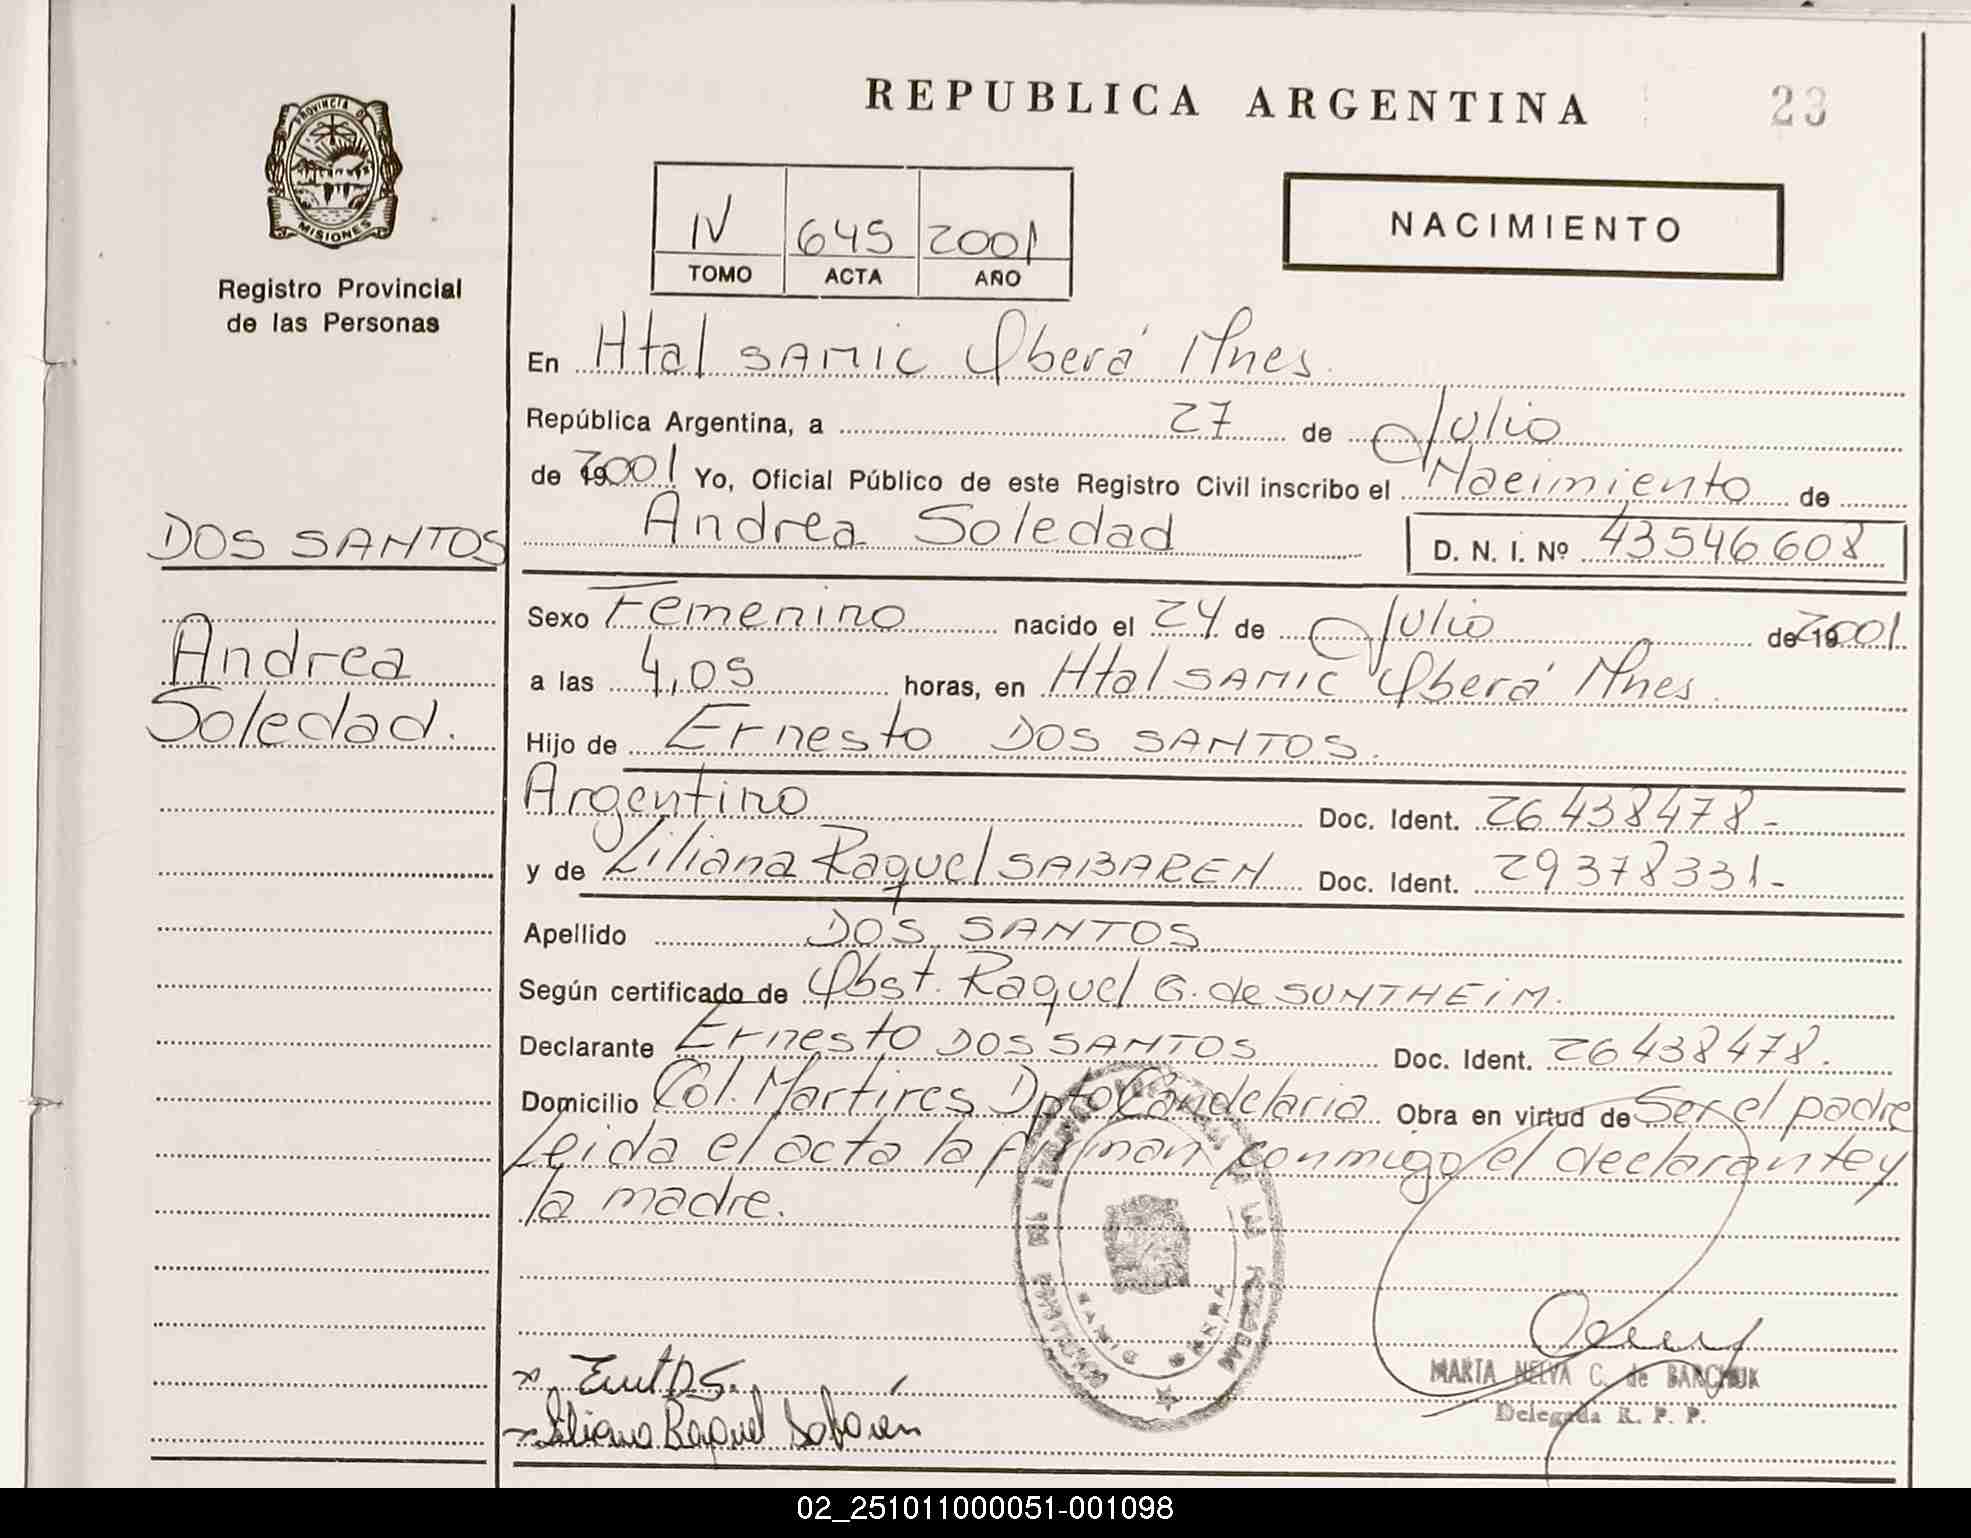 REPUBLICA ARGENTINA
23
PROVINCIA D
MISIONES
Registro Provincial
de las Personas
IV 645 2001
TOMO ACTA AÑO
NACIMIENTO
En Htal SAMIC Oberá Mnes.
República Argentina, a 27 de Julio
de 2001 Yo, Oficial Público de este Registro Civil inscribo el Nacimiento de
Andrea Soledad D. N. I. Nº 43546608
DOS SANTOS
Andrea
Soledad.
Sexo Femenino nacido el 24 de Julio de 2001
a las 4,05 horas, en Htal SAMIC Oberá Mnes.
Hijo de Ernesto DOS SANTOS.
Argentino Doc. Ident. 26438478-
y de Liliana Raquel SABAREN Doc. Ident. 29378331-
Apellido DOS SANTOS
Según certificado de Obst. Raquel G. de SUNTHEIM.
Declarante Ernesto DOS SANTOS Doc. Ident. 26438478.
Domicilio Col. Martires Dpto Candelaria Obra en virtud de Ser el padre
Leida el acta la firman conmigo el declarante y
la madre.
Liliana Raquel Sabarén
MARTA NELVA C. de BARCHUK
Delegada R. P. P.
02_251011000051-001098